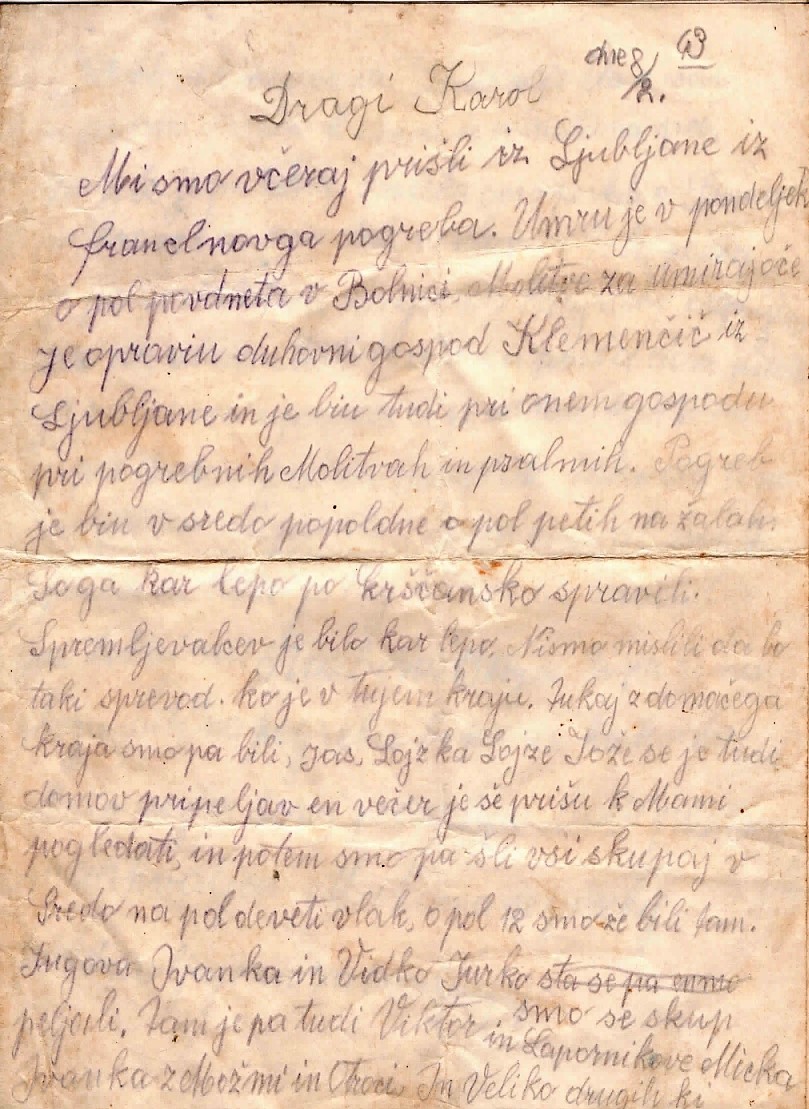 dne 8/2. 43
Dragi Karol
Mi smo včeraj prišli iz Ljubljane iz
francelnovga pogreba. Umru je v pondeljek
o pol povdneta v Bolnici, Molitve za umirajoče
je opraviu duhovni gospod Klemenčič iz
Ljubljane in je biu tudi pri onem gospodu
pri pogrebnih Molitvah in psalmih. Pogreb
je biu v sredo popoldne o pol petih na žalah.
So ga kar lepo po krščansko spravili.
Spremljevalcev je bilo kar lepo. Nismo mislili da bo
taki sprevod. ko je v tujem kraju. Tukaj z domačega
kraja smo pa bili, jas, Lojzka Lojze Jože se je tudi
domov pripeljav en večer je še prišu k Mami.
pogledati, in potem smo pa šli vsi skupaj v
Sredo na pol deveti vlak, o pol 12 smo že bili tam.
Jugova Ivanka in Vidko Jurko sta se pa
smo se skup
peljali. Tam je pa tudi Viktor in Lapornikove Micka
Ivanka z Možmi in Otroci In Veliko drugih ki